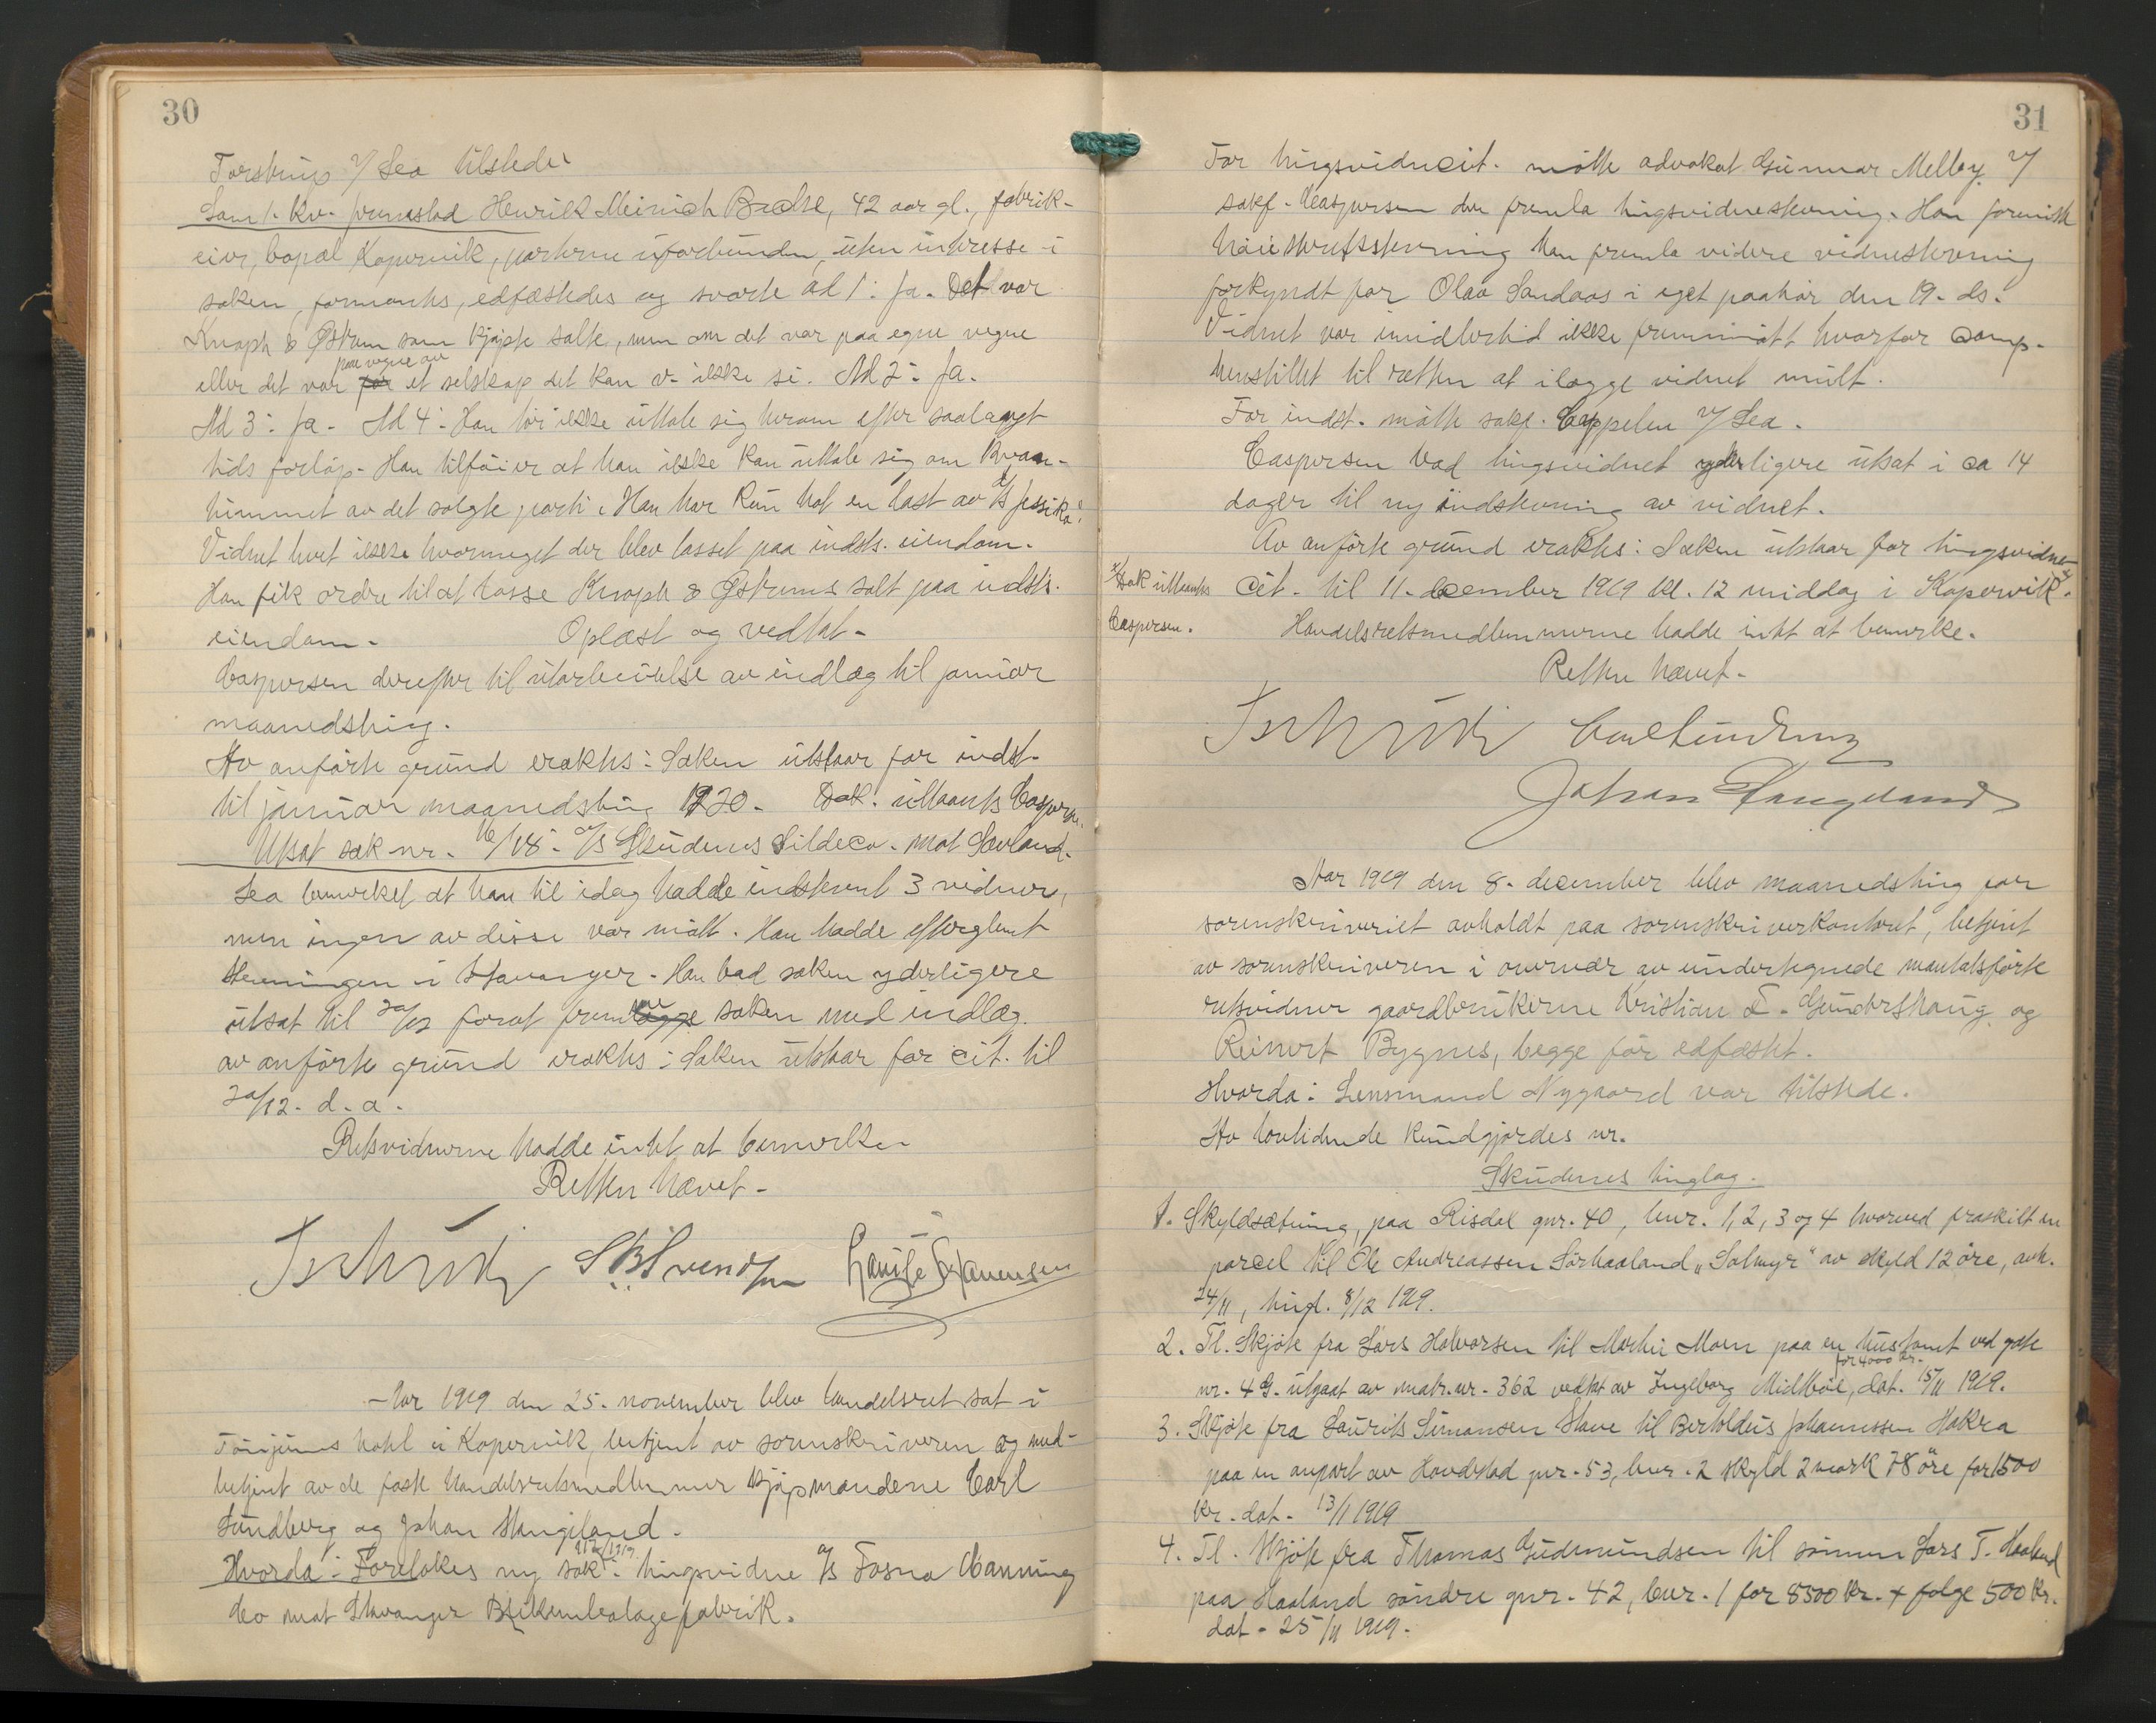 30
Torstrup v/ Sea tilstede.
Som 1. kv. fremstod Henrik Meinich Bache, 42 aar gl., fabrik-
eier, bopæl Kopervik, parterne uforbunden, uten interesse i
saken, formantes, edfæstedes og svarte ad 1: Ja. Det var
Knoph & Østrem som kjøpte saltet, men om det var paa egne vegne
eller det var paa vegne av et selskap det kan v. ikke si. Ad 2: Ja.
Ad 3: Ja. Ad 4: Han tør ikke uttale sig herom efter saalangt
tids forløp. Han tilføier at han ikke kan uttale sig om kvan-
tummet av det solgte parti. Han har kun hat en last av d/s Jessika.
Vidnet hvet ikke hvormeget der blev losset paa indsts. eiendom.
Han fik ordre til at losse Knoph & Østrems salt paa indsts.
eiendom. Oplæst og vedtat.
Caspersen derefter til utarbeidelse av indlæg til januar
maanedsting.
Av anførte grund eraktes: Saken utstaar for indst.
til januar maanedsting 1920. Dok. utlaants Caspersen.
Utsat sak nr. 16/18: A/S Skudenes Sildeco. mot Sævland.
Sea bemerket at han til idag hadde indstevnt 3 vidner,
men ingen av disse var møtt. Han hadde efterglemt
stevningen i Stavanger. Han bad saken yderligere
utsat til 20/12 forat fremme saken med indlæg.
av anførte grund eraktes: Saken utstaar for cit. til
20/12. d.a.
Retsvidnerne hadde intet at bemerke.
Retten hævet.
Aar 1919 den 25. november blev handelsret sat i
Tønjums hotel i Kopervik, betjent av sorenskriveren og med-
betjent av de faste handelsretsmedlemmer kjøpmændene Carl
Sundberg og Johan Stangeland.
Hvorda: Foretokes ny sak: tingsvidne A/S Fosna Canning
Co mot Stavanger Blikemballagefabrik.
31
For tingsvidnecit. møtte advokat Gunnar Melby v/
sakf. Caspersen der fremla tingsvidnestevning. Han
Han fremla videre vidnestevning
forkyndt for Olav Sandaas i eget paahør den 19. ds.
Vidnet var imidlertid ikke fremmøtt hvorfor comp.
henstillet til retten at ilægge vidnet mult.
For indst. møtte sakf. Cappelen v/ Sea.
Caspersen bad tingsvidnet yderligere utsat i ca 14
dager til ny indstevning av vidnet.
Av anførte grund eraktes: Saken utstaar for tingsvidne-
cit. til 11. december 1919 kl. 12 middag i Kopervik. x/
x/ Dok utlaants
Caspersen.
Handelsretsmedlemmerne hadde intet at bemerke.
Retten hævet.
Carl Sundberg
Johan Stangeland
Aar 1919 den 8. december blev maanedsting for
sorenskriveriet avholdt paa sorenskriverkontoret, betjent
av sorenskriveren i overvær av undertegnede mantalsførte
retsvidner gaardbrukerne Kristian T. Gundershaug og
Reinert Bygnes, begge før edfæstet.
Hvorda: Lensmand Nygaard var tilstede.
Av Lovtidende kundgjordes nr.
Skudenes tinglag.
1. Skyldsætning, paa Risdal gnr. 40, bnr. 1, 2, 3 og 4 hvorved fraskilt en
parcel til Ole Andreassen Sørhaaland „Solmyr" av skyld 12 øre, avh.
24/11, tingl. 8/12 1919.
2. Tl. Skjøte fra Lars Halvorsen til Martin Moen paa en hustomt ved gate
nr. 4 G. utgaat av matr. nr. 362 vedtat av Ingeborg Midbøe, for 4000 kr. dat. 15/11 1919.
3. Skjøte fra Laurits Simonsen Stave til Bertoldus Johannessen Hakra
paa en anpart av Hovdstad gnr. 53, bnr. 2 skyld 2 mark 78 øre for 1500
kr. dat. 13/11 1919
4. Tl. Skjøte fra Thomas Gudmundsen til sønnen Lars T. Haaland
paa Haaland søndre gnr. 42, bnr. 1 for 8500 kr. + følge 500 kr.
dat. 25/11 1919.